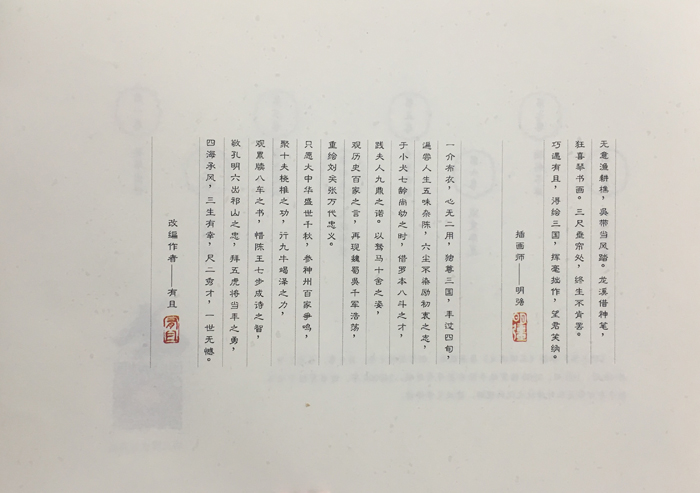 无意渔耕樵，吴带当风踏。龙溪借神笔，
狂喜琴书画。三尺垂帘处，终生不肯罢。
巧遇有且，得绘三国，挥毫拙作，望君笑纳。
插画师——明强
一介布衣，心无二用，独尊三国，年过四旬，
遍尝人生五味杂陈，六尘不染励初衷之志，
于小犬七龄尚幼之时，借罗本八斗之才，
践夫人九鼎之诺。以驽马十舍之姿，
观历史百家之言，再现魏蜀吴千军浩荡，
重绘刘关张万代忠义。
只愿大中华盛世千秋，参神州百家争鸣，
聚十夫桡椎之功，行九牛竭泽之力，
观累牍八车之书，悟陈王七步成诗之智，
敬孔明六出祁山之忠，拜五虎将当年之勇，
四海承风，三生有幸，尺二秀才，一世无憾。
改编作者——有且